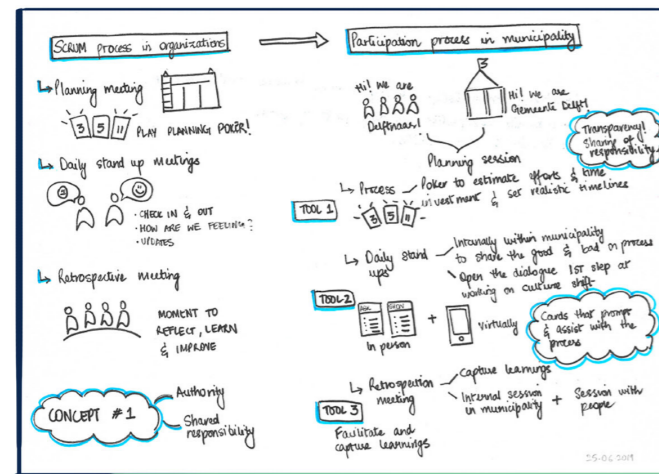 SCRUM process in organizations
Planning meeting
3 5 11 PLAY PLANNING POKER!
Daily stand up meetings
• CHECK IN & OUT
• HOW ARE WE FEELING?
• UPDATES
Retrospective meeting
MOMENT TO
REFLECT, LEARN
& IMPROVE
CONCEPT #1
Authority
Shared
responsibility
Participation process in municipality
Hi! we are
Delftnaar!
Hi! we are
Gemeente Delft!
Transparency!
sharing of
responsibility
Planning session
Process
Poker to estimate efforts & time
investment & set realistic timelines
TOOL 1
3 5 11
Daily stand
ups
Internally within municipality
to share the good & bad on process
Open the dialogue 1st step at
working on culture shift
TOOL 2
In person
+
virtually
Cards that prompt
& assist with the
process
Retrospection
meeting
Capture learnings
Internal session
in municipality
+
Session with
people
TOOL 3
Facilitate and
capture learnings
25-06-2019